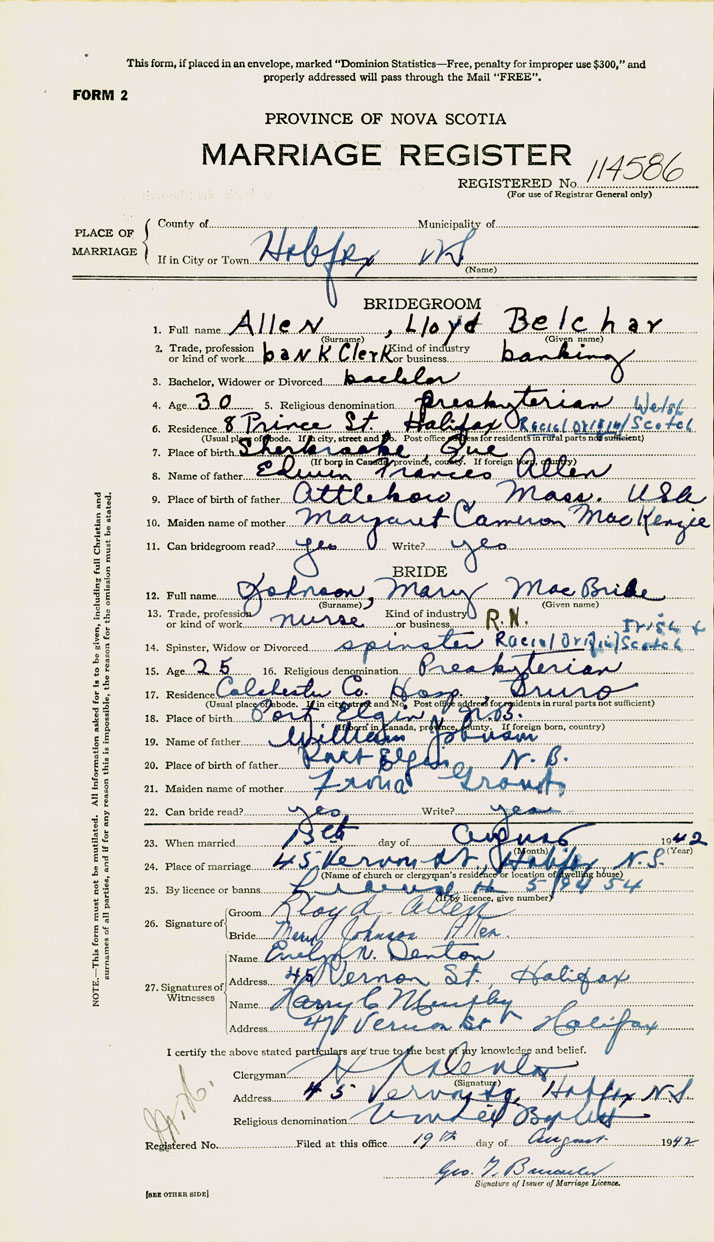 This form, if placed in an envelope, marked "Dominion Statistics—Free, penalty for improper use $300," and
properly addressed will pass through the Mail "FREE".
FORM 2
PROVINCE OF NOVA SCOTIA
MARRIAGE REGISTER
REGISTERED No. 114586
(For use of Registrar General only)
PLACE OF MARRIAGE
County of Municipality of
If in City or Town Halifax NS
(Name)
BRIDEGROOM
1. Full name Allen, Lloyd Belchar
(Surname) (Given name)
2. Trade, profession or kind of work bank Clerk Kind of industry or business banking
3. Bachelor, Widower or Divorced bachelor
4. Age 30 5. Religious denomination Presbyterian Welsh
6. Residence 8 Prince St. Halifax Racial Origin/Scotch
(Usual place of abode. If in city, street and No. Post office address for residents in rural parts not sufficient)
7. Place of birth Sherbrooke, Que
(If born in Canada, province, county. If foreign born, country)
8. Name of father Edwin Frances Allen
9. Place of birth of father Attleboro, Mass. USA
10. Maiden name of mother Margaret Cameron MacKenzie
11. Can bridegroom read? yes Write? yes
BRIDE
12. Full name Johnson, Mary MacBride
(Surname) (Given name)
13. Trade, profession or kind of work nurse Kind of industry or business R.N.
Irish &
14. Spinster, Widow or Divorced spinster Racial Origin/Scotch
15. Age 25 16. Religious denomination Presbyterian
17. Residence Colchester Co. Hosp, Truro
(Usual place of abode. If in city street and No. Post office address for residents in rural parts not sufficient)
18. Place of birth Port Elgin, N.B.
(If born in Canada, province, county. If foreign born, country)
19. Name of father William Johnson
20. Place of birth of father Port Elgin N. B.
21. Maiden name of mother Grant
22. Can bride read? yes Write? yes
23. When married 13th day of August 1942
(Month) (Year)
24. Place of marriage 45 Vernon St., Halifax N.S.
(Name of church or clergyman's residence or location of dwelling house)
25. By licence or banns License 519454
(If by licence, give number)
26. Signature of
Groom Lloyd Allen
Bride Mary Johnson Allen.
27. Signatures of Witnesses
Name Evelyn N. Denton
Address 45 Vernon St. Halifax
Name Harry C Murphy
Address 47 Vernon St Halifax
I certify the above stated particulars are true to the best of my knowledge and belief.
Clergyman
(Signature)
Address 45 Vernon St, Halifax N.S.
Religious denomination United Baptist
Registered No. Filed at this office 19th day of August 1942
Geo. F.
Signature of Issuer of Marriage Licence.
[SEE OTHER SIDE]
NOTE.—This form must not be mutilated. All information asked for is to be given, including full Christian and
surnames of all parties, and if for any reason this is impossible, the reason for the omission must be stated.